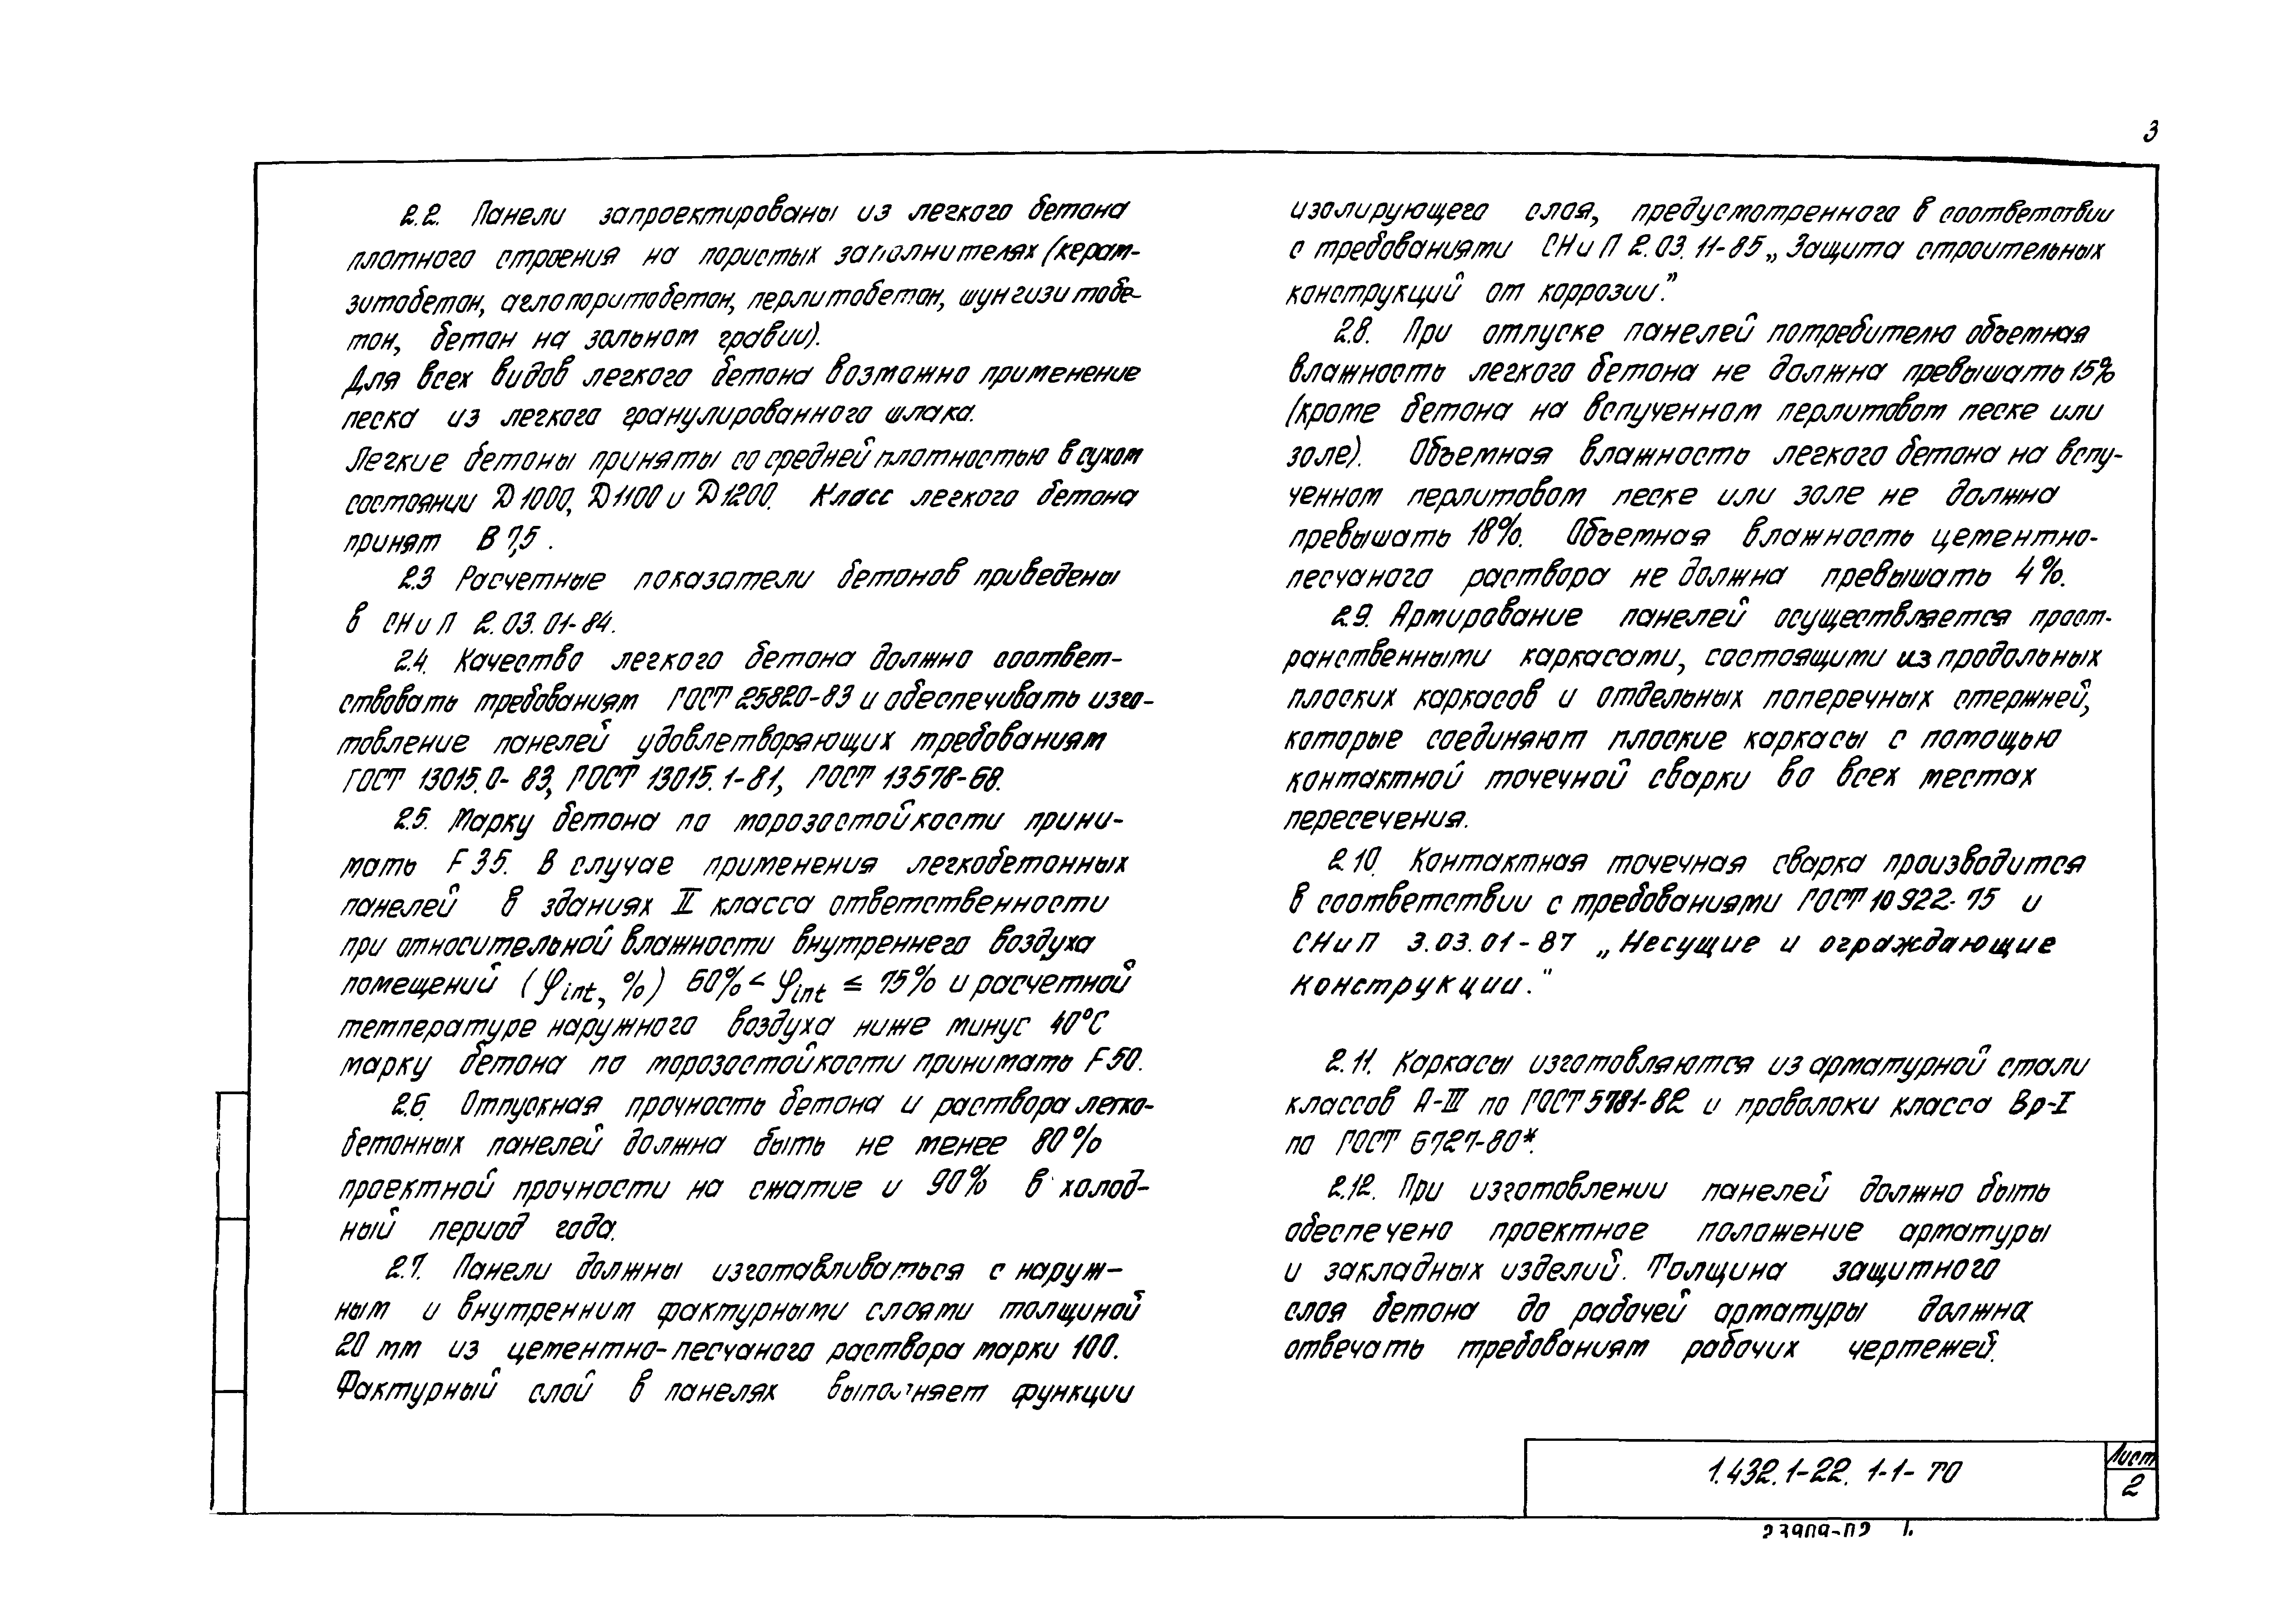 3
2.2. Панели запроектированы из легкого бетона
плотного строения на пористых заполнителях (керам-
зитобетон, аглопоритобетон, перлитобетон, шунгизитобе-
тон, бетон на зольном гравии).
Для всех видов легкого бетона возможно применение
песка из легкого гранулированного шлака.
Легкие бетоны приняты со средней плотностью в сухом
состоянии D1000, D1100 и D1200. Класс легкого бетона
принят В 7,5.
2.3 Расчетные показатели бетонов приведены
в СНиП 2.03.01-84.
2.4. Качество легкого бетона должно соответ-
ствовать требованиям ГОСТ 25820-83 и обеспечивать изго-
товление панелей удовлетворяющих требованиям
ГОСТ 13015.0-83, ГОСТ 13015.1-81, ГОСТ 13578-68.
2.5. Марку бетона по морозостойкости прини-
мать F 35. В случае применения легкобетонных
панелей в зданиях II класса ответственности
при относительной влажности внутреннего воздуха
помещений (φint, %) 60% < φint ≤ 75% и расчетной
температуре наружного воздуха ниже минус 40°С
марку бетона по морозостойкости принимать F 50.
2.6. Отпускная прочность бетона и раствора легко-
бетонных панелей должна быть не менее 80%
проектной прочности на сжатие и 90% в холод-
ный период года.
2.7. Панели должны изготавливаться с наруж-
ным и внутренним фактурными слоями толщиной
20 мм из цементно-песчаного раствора марки 100.
Фактурный слой в панелях выполняет функции
изолирующего слоя, предусмотренного в соответствии
с требованиями СНиП 2.03.11-85 „Защита строительных
конструкций от коррозии."
2.8. При отпуске панелей потребителю объемная
влажность легкого бетона не должна превышать 15%
(кроме бетона на вспученном перлитовом песке или
золе). Объемная влажность легкого бетона на вспу-
ченном перлитовом песке или золе не должна
превышать 18%. Объемная влажность цементно-
песчаного раствора не должна превышать 4%.
2.9. Армирование панелей осуществляется прост-
ранственными каркасами, состоящими из продольных
плоских каркасов и отдельных поперечных стержней,
которые соединяют плоские каркасы с помощью
контактной точечной сварки во всех местах
пересечения.
2.10. Контактная точечная сварка производится
в соответствии с требованиями ГОСТ 10922-75 и
СНиП 3.03.01-87 „Несущие и ограждающие
конструкции."
2.11. Каркасы изготовляются из арматурной стали
классов А-III по ГОСТ 5781-82 и проволоки класса Вр-I
по ГОСТ 6727-80*.
2.12. При изготовлении панелей должно быть
обеспечено проектное положение арматуры
и закладных изделий. Толщина защитного
слоя бетона до рабочей арматуры должна
отвечать требованиям рабочих чертежей.
1.432.1-22. 1-1- ТО
Лист
2
23909-02